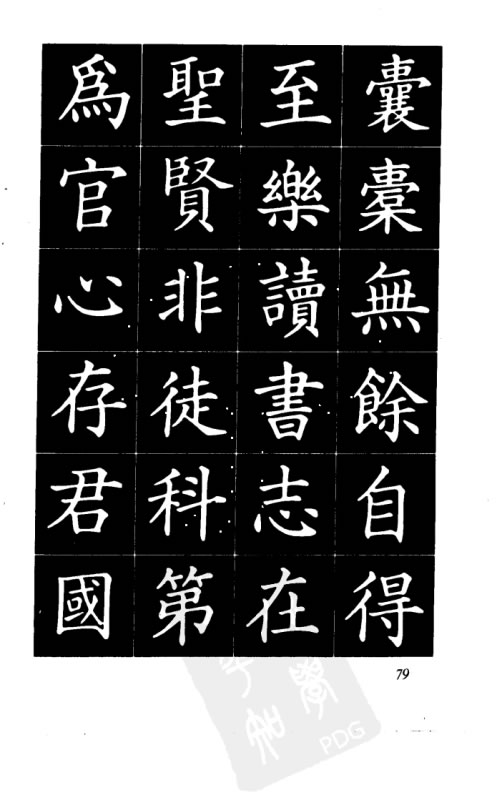 囊橐無餘自得
至樂讀書志在
聖賢非徒科第
爲官心存君國
79
PDG